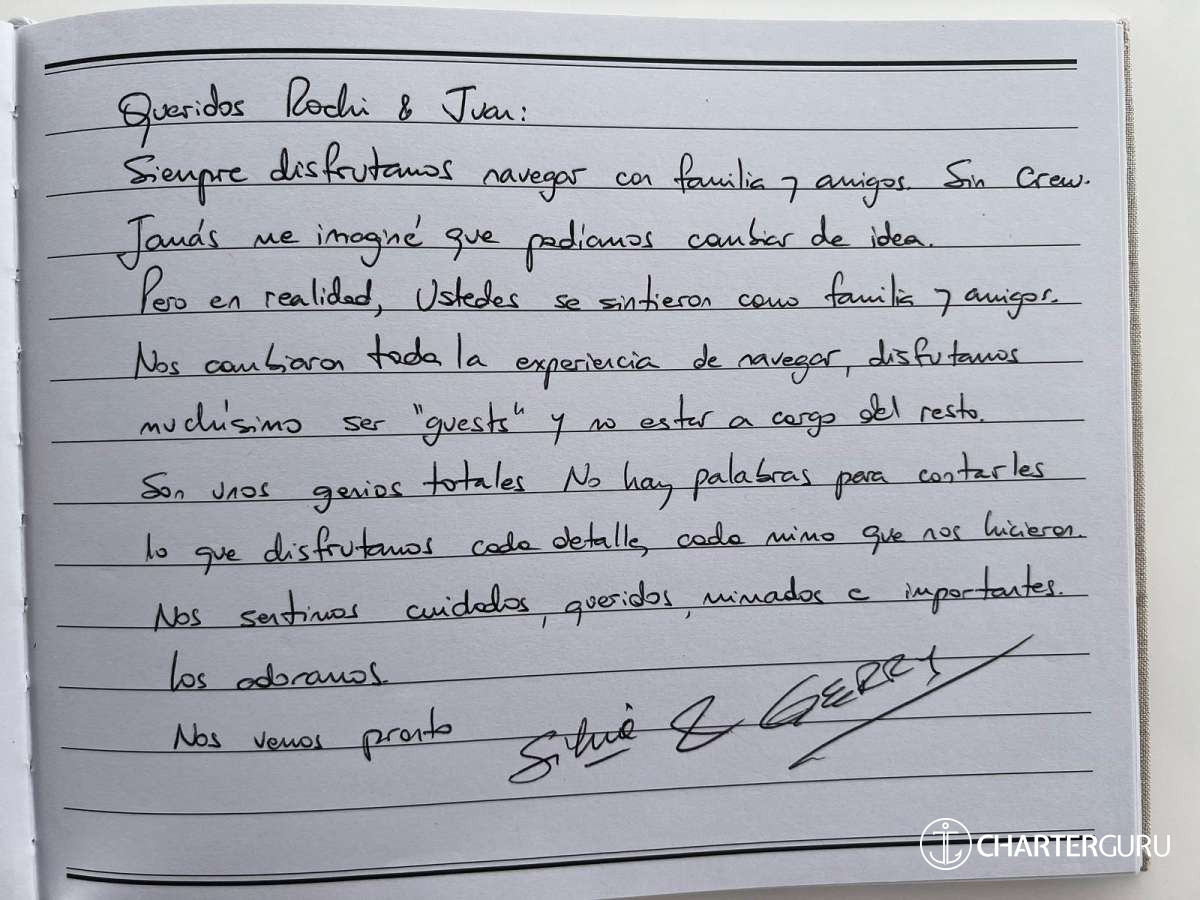 Queridos Rochi & Juan:
Siempre disfrutamos navegar con familia y amigos. Sin Crew.
Jamás me imaginé que podíamos cambiar de idea.
Pero en realidad, Ustedes se sintieron como familia y amigos.
Nos cambiaron toda la experiencia de navegar, disfutamos
muchísimo ser "guests" y no estar a cargo del resto.
Son unos genios totales No hay palabras para contarles
lo que disfrutamos cada detalle, cada mimo que nos hicieron.
Nos sentimos cuidados, queridos, mimados e importantes.
Los adoramos.
Nos vemos pronto
Silvia & GERRY
CHARTERGURU